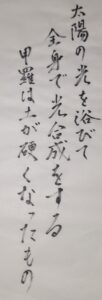 太陽の光を浴びて
全身で光合成をする
甲羅は土が硬くなったもの